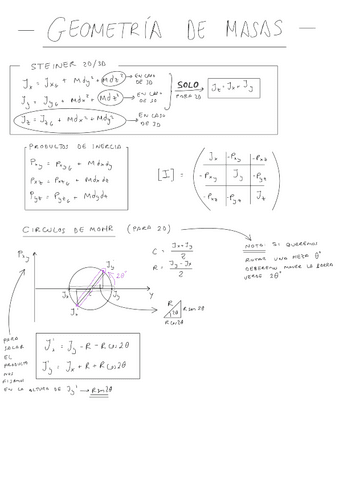 — GEOMETRÍA DE MASAS —
STEINER 2D/3D
Jx = JxG + Mdy² + Mdz² → EN CASO DE 3D
Jy = JyG + Mdx² + Mdz² → EN CASO DE 3D
Jz = JzG + Mdx² + Mdy² → EN CASO DE 3D
SOLO PARA 2D
Jz = Jx + Jy
PRODUCTOS DE INERCIA
Pxy = PxyG + Mdxdy
Pxz = PxzG + Mdxdz
Pyz = PyzG + Mdydz
[I] =
Jx -Pxy -Pxz
-Pxy Jy -Pyz
-Pxz -Pyz Jz
CIRCULOS DE MOHR (PARA 2D)
C = Jx+Jy / 2
R = Jy-Jx / 2
NOTA: SI QUEREMOS
ROTAR UNA PIEZA θ°
DEBEREMOS MOVER LA BARRA
VERDE 2θ°
Pxy
Jy'
2θ°
Jx
Jy
y
Jx'
R
2θ
R sin 2θ
R cos 2θ
PARA
SACAR
EL
PRODUCTO
NOS
FIJAMOS
EN LA ALTURA DE Jy' → R sin 2θ
Jx' = Jy - R - R cos 2θ
Jy' = Jx + R + R cos 2θ